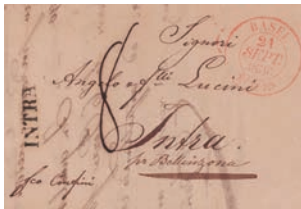 BASEL
21
SEPT
Signori
Angelo e flli Lucini
Intra.
per Bellinzona
fco Confini
INTRA